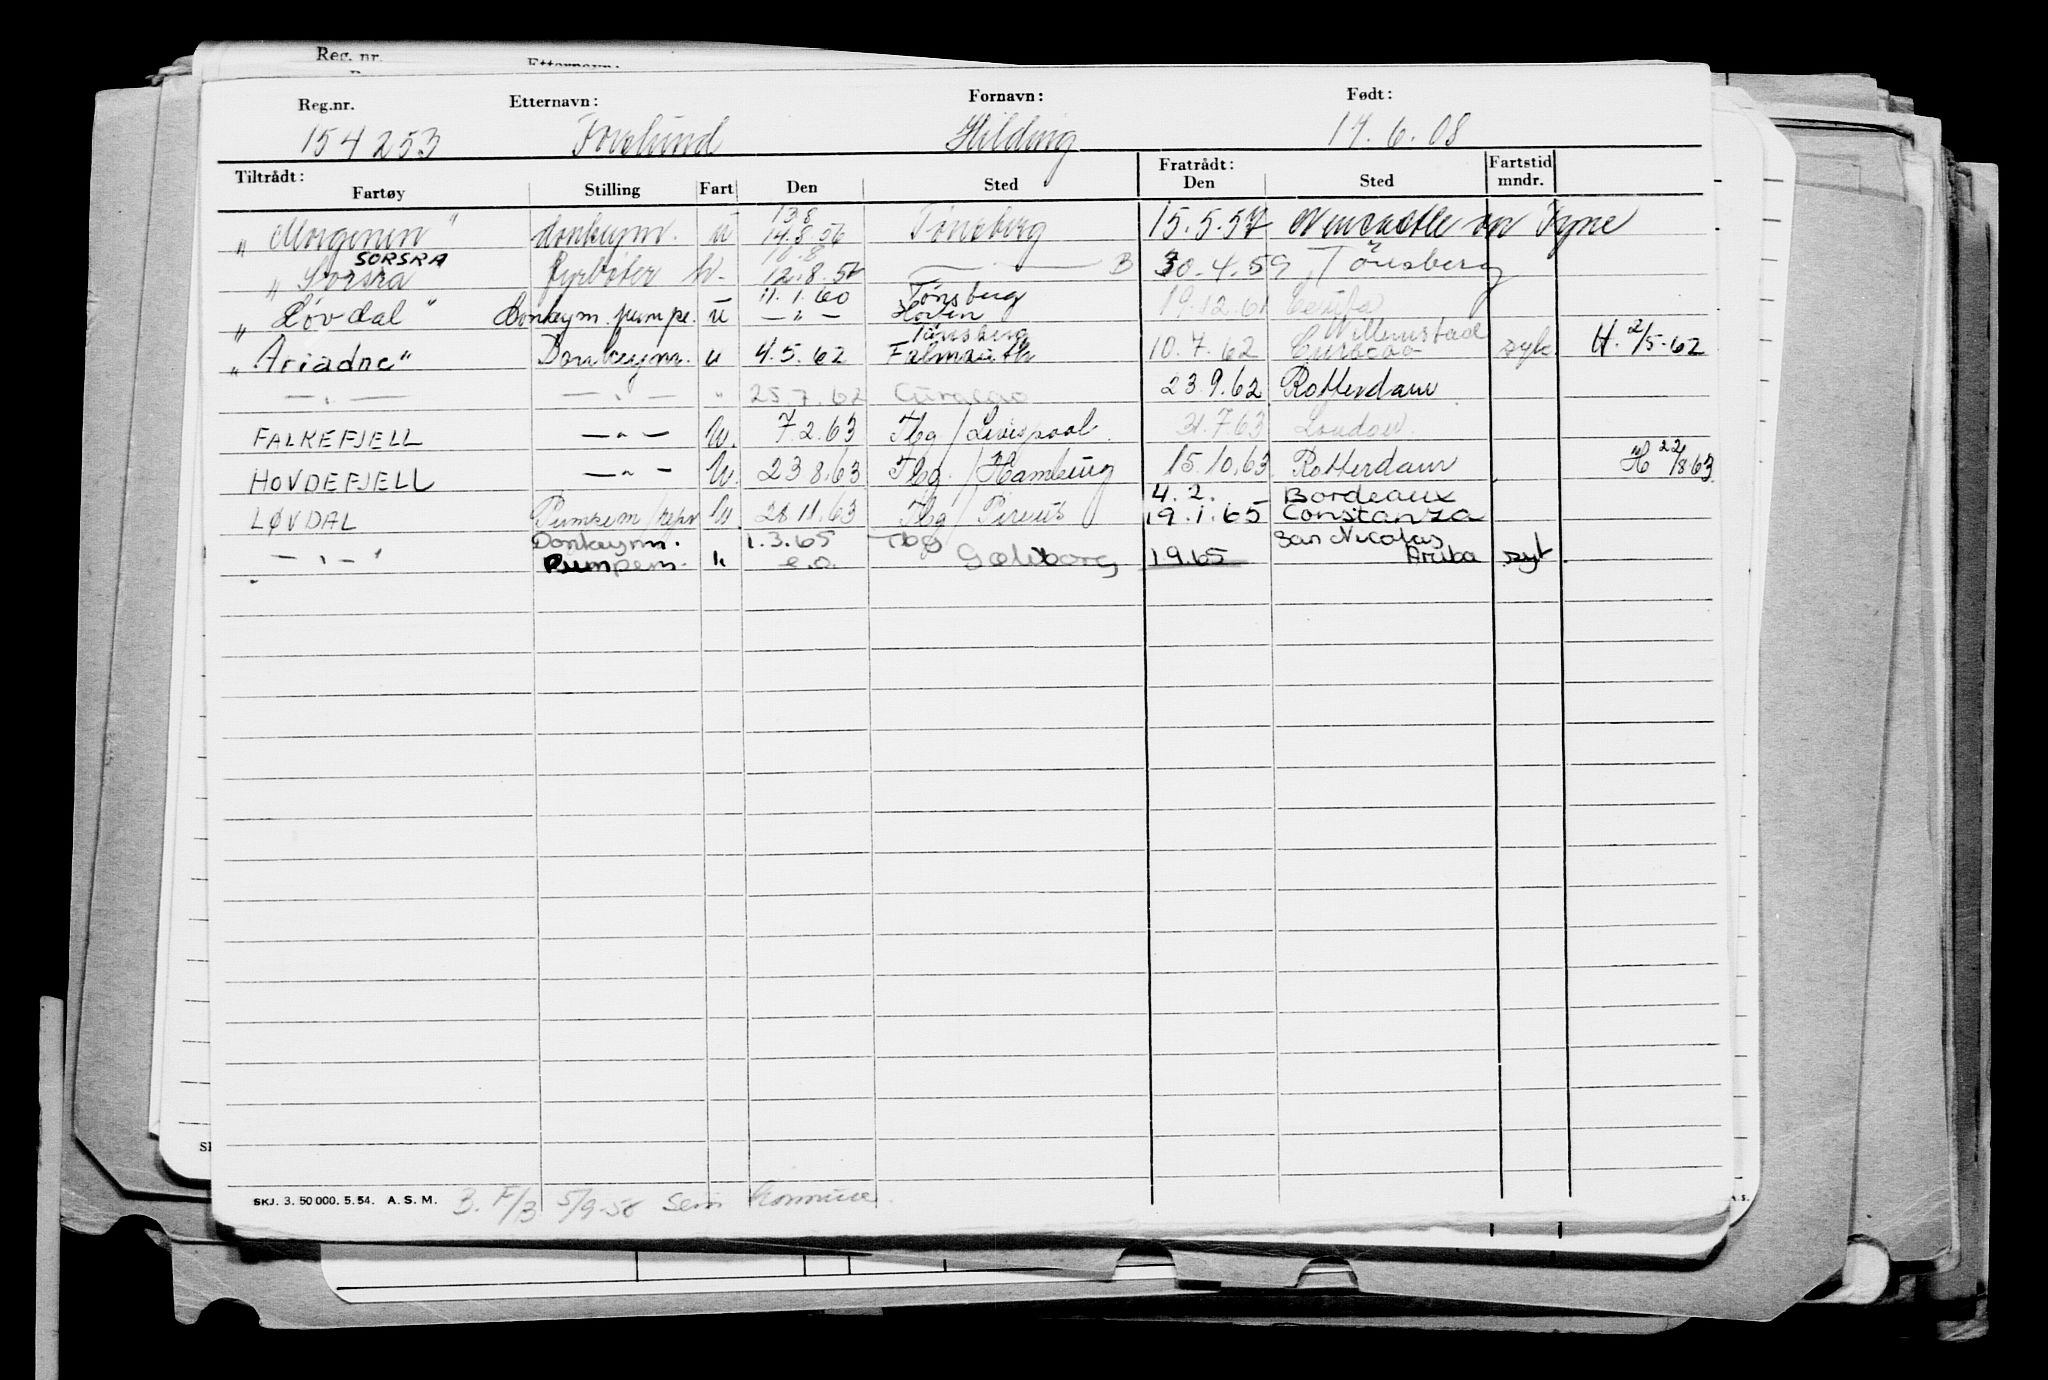 Reg. nr. Etternavn:
Reg.nr. Etternavn: Fornavn: Født:
154253 Forslund Hilding 17.6.08
Tiltrådt: Fratrådt: Fartstid
Fartøy Stilling Fart Den Sted Den Sted mndr.
13.8
„ Morgenen " donkeym. u 14.8.56 Tönsberg 15.5.57 Newcastle on Tyne
SORSRA 10.8
„ Sorsra fyrböter 12.8.57 — B 30.4.59 Tönsberg
11.1.60 Tönsberg
„ Løvdal " Donkeym. pumpe. u — " — Hoven 19.12.61 Ceuta
Tönsberg Willemstad
„ Ariadne " Donkeym. u 4.5.62 Falmouth 10.7.62 Curacao syk H. 2/5-62
— " — — " — " 25.7.62 Curacao 23.9.62 Rotterdam
FALKEFJELL — " — U. 7.2.63 Tbg / Liverpool. 31.7.63 London.
HOVDEFJELL — " — U. 23.8.63 Tbg / Hamburg 15.10.63 Rotterdam H 22/8.63
4.2. — Bordeaux
LØVDAL Pumpem/repr U. 28.11.63 Tbg / Pireus 19.1.65 Constanza
Donkeym. 1.3.65 Tbg San Nicolas
— " — " Pumpem. " e.o. Gøteborg 1.9.65 Aruba syk
SKJ. 3. 50 000. 5. 54. A. S. M. B. F/3 5/9-58 Sem kommune.
A. S.